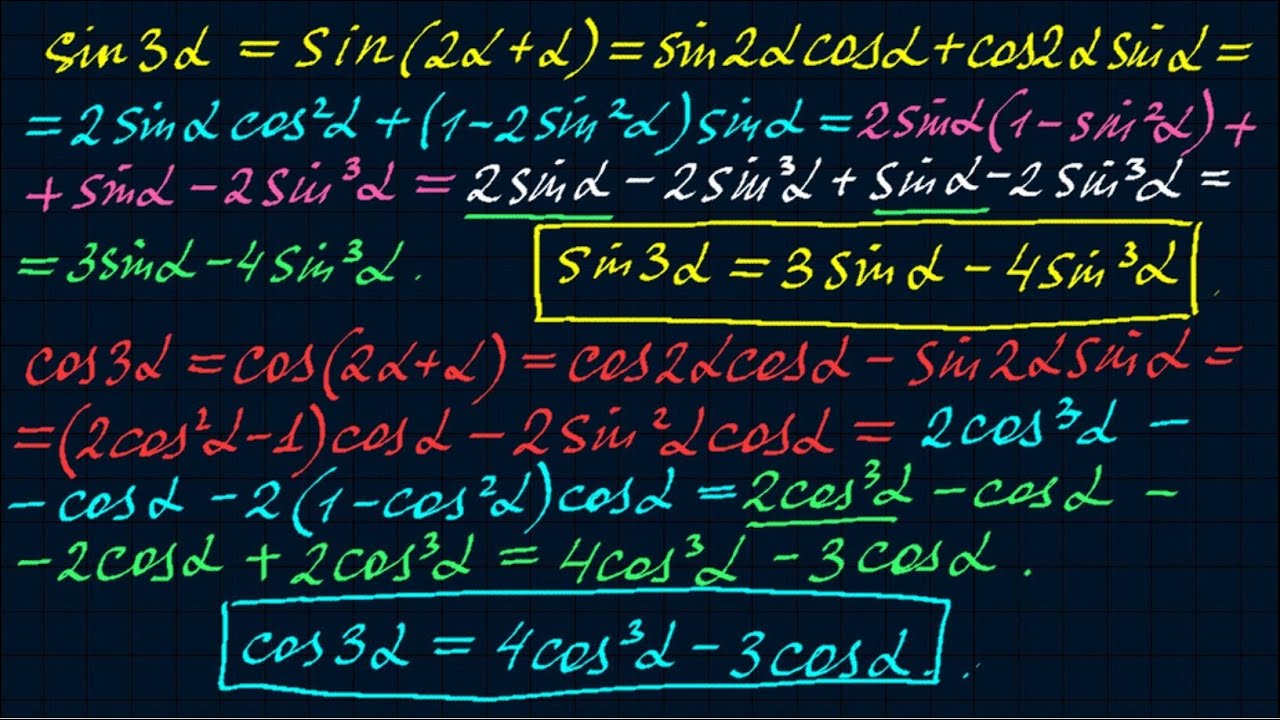 sin3α = sin(2α+α) = sin2αcosα+cos2αsinα =
= 2sinαcos²α+(1-2sin²α)sinα = 2sinα(1-sin²α)+
+ sinα-2sin³α = 2sinα-2sin³α+sinα-2sin³α =
= 3sinα-4sin³α. sin3α = 3sinα-4sin³α.
cos3α = cos(2α+α) = cos2αcosα-sin2αsinα =
= (2cos²α-1)cosα-2sin²αcosα = 2cos³α-
-cosα-2(1-cos²α)cosα = 2cos³α-cosα-
-2cosα+2cos³α = 4cos³α-3cosα.
cos3α = 4cos³α-3cosα.